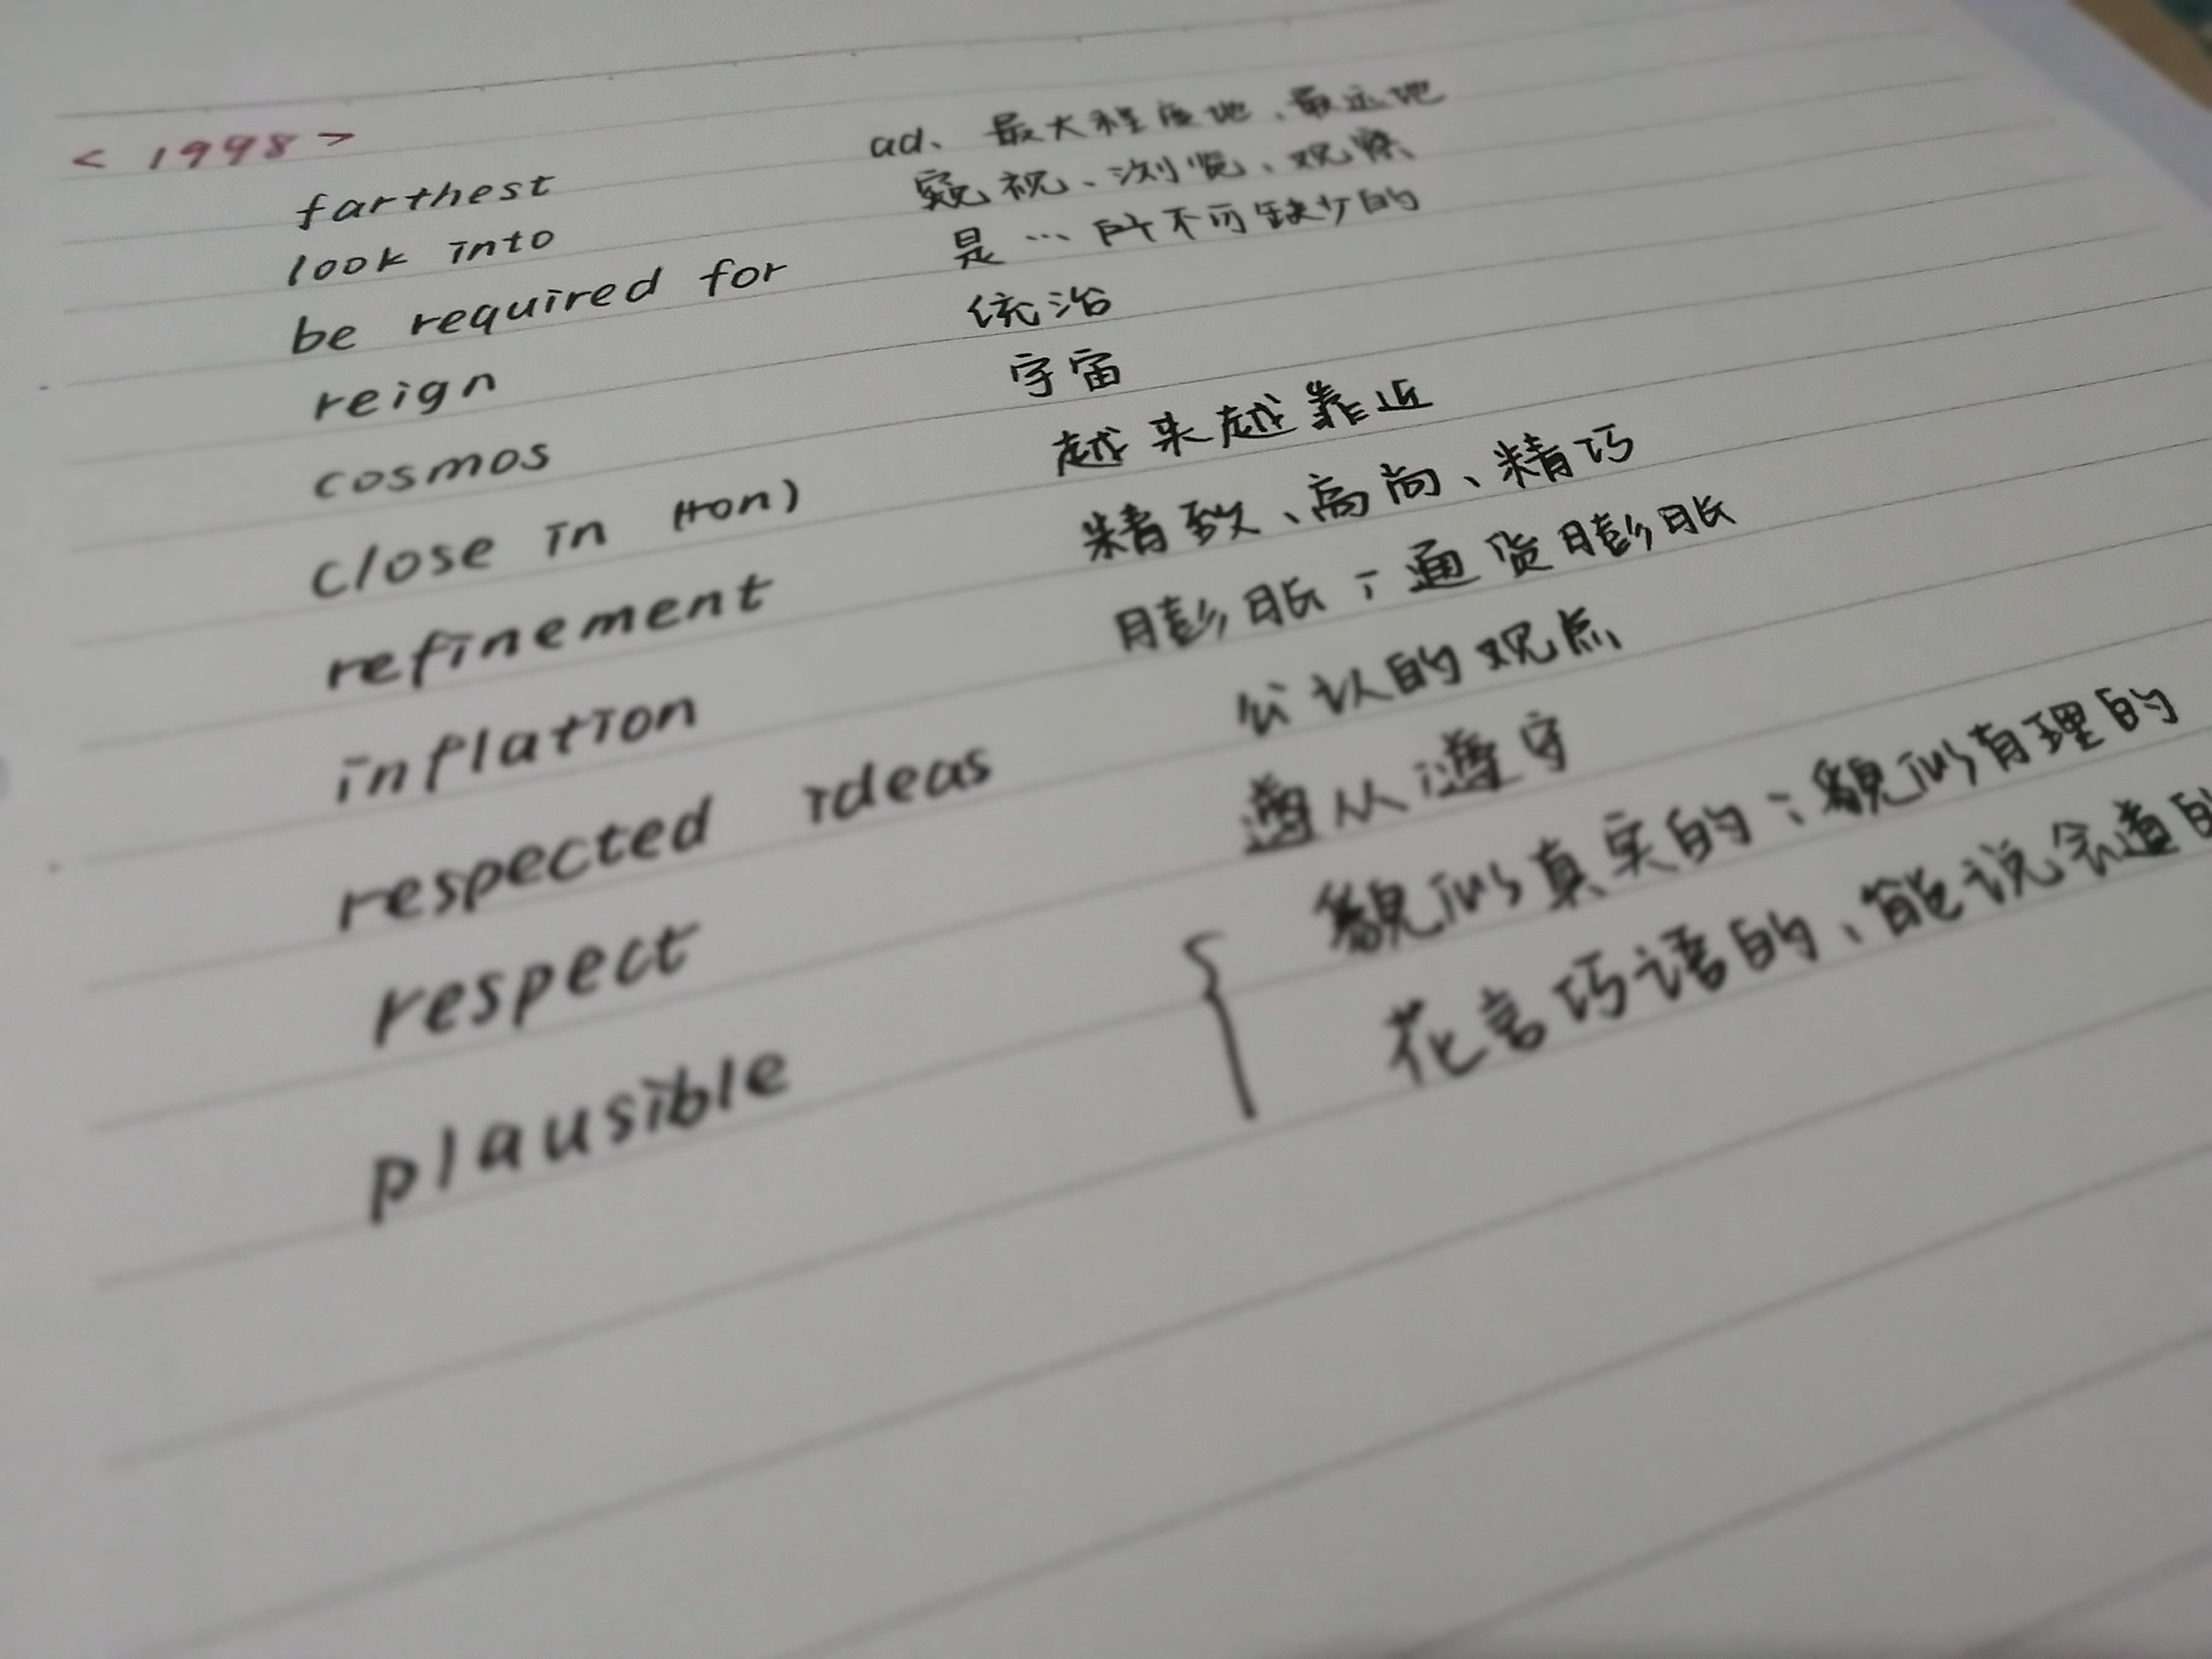 < 1998 >
farthest ad、最大程度地、最远地
look into 窥视、浏览、观察
be required for 是…所不可缺少的
reign 统治
cosmos 宇宙
close in (+on) 越来越靠近
refinement 精致、高尚、精巧
inflation 膨胀；通货膨胀
respected ideas 公认的观点
respect 遵从；遵守
plausible { 貌似真实的；貌似有理的
花言巧语的、能说会道的